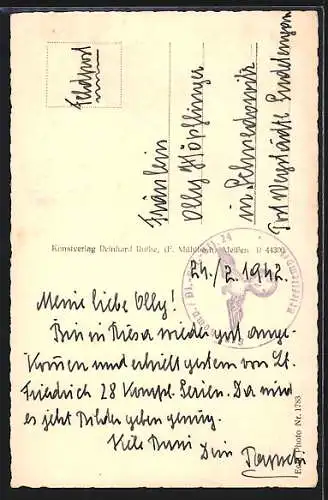 Feldpost
Fräulein
Olly Höpflinger
in Schwedowitz
Post Wegstädtl Sudetengau
Kunstverlag Reinhard Rothe, (F. Mühlborn) Meißen R 44300
24./2. 1942.
Meine liebe Olly!
Bin in Riesa wieder gut ange-
kommen und erhielt gestern von Lt.
Friedrich 28 Kompl. Serien. Da wird
es jetzt Bilder geben genug.
Viele Bussi
Dein
Echt Photo Nr. 1783